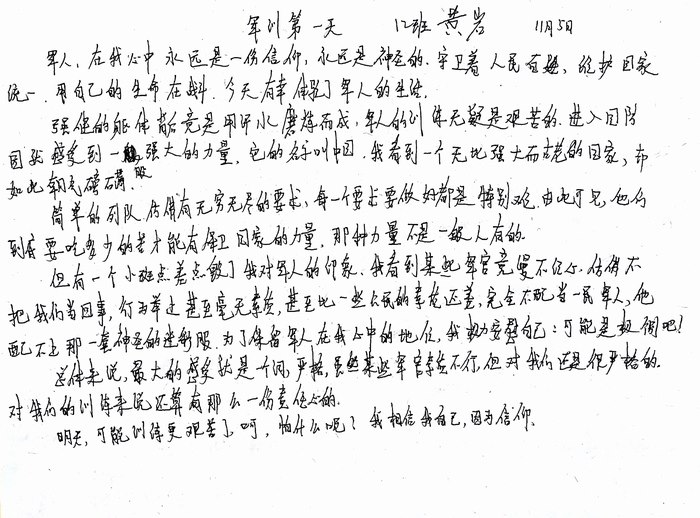 军训第一天 12班 黄岩 11月5日
军人，在我心中永远是一份信仰，永远是神圣的.守卫着人民百姓，维护国家
统一.用自己的生命在战斗.今天有幸体验了军人的生活.
强健的躯体背后竟是用汗水磨炼而成，军人的训练无疑是艰苦的.进入团队
因我感受到一股强大的力量，它的名字叫中国.我看到一个无比强大而古老的国家，却
如此朝气磅礴.
简单的列队仿佛有无穷无尽的要求，每一个要求要做好都是特别难.由此可见，他们
到底要吃多少的苦才能有保卫国家的力量，那种力量不是一般人有的.
但有一个小斑点差点毁了我对军人的印象.我看到某些军官竟漫不经心.仿佛不
把我们当回事，行为举止甚至毫无素质，甚至比一些公民的素质还差，完全不配当一民军人，他
配不上那一套神圣的迷彩服.为了保留军人在我心中的地位，我努力安慰自己：可能是极例吧！
总体来说，最大的感受就是一个词，严格，虽然某些军官素质不行，但对我们还是很严格的.
对我们的训练来说还算有那么一份责任心的.
明天，可能训练更艰苦了.呵，怕什么呢？我相信我自己，因为信仰.